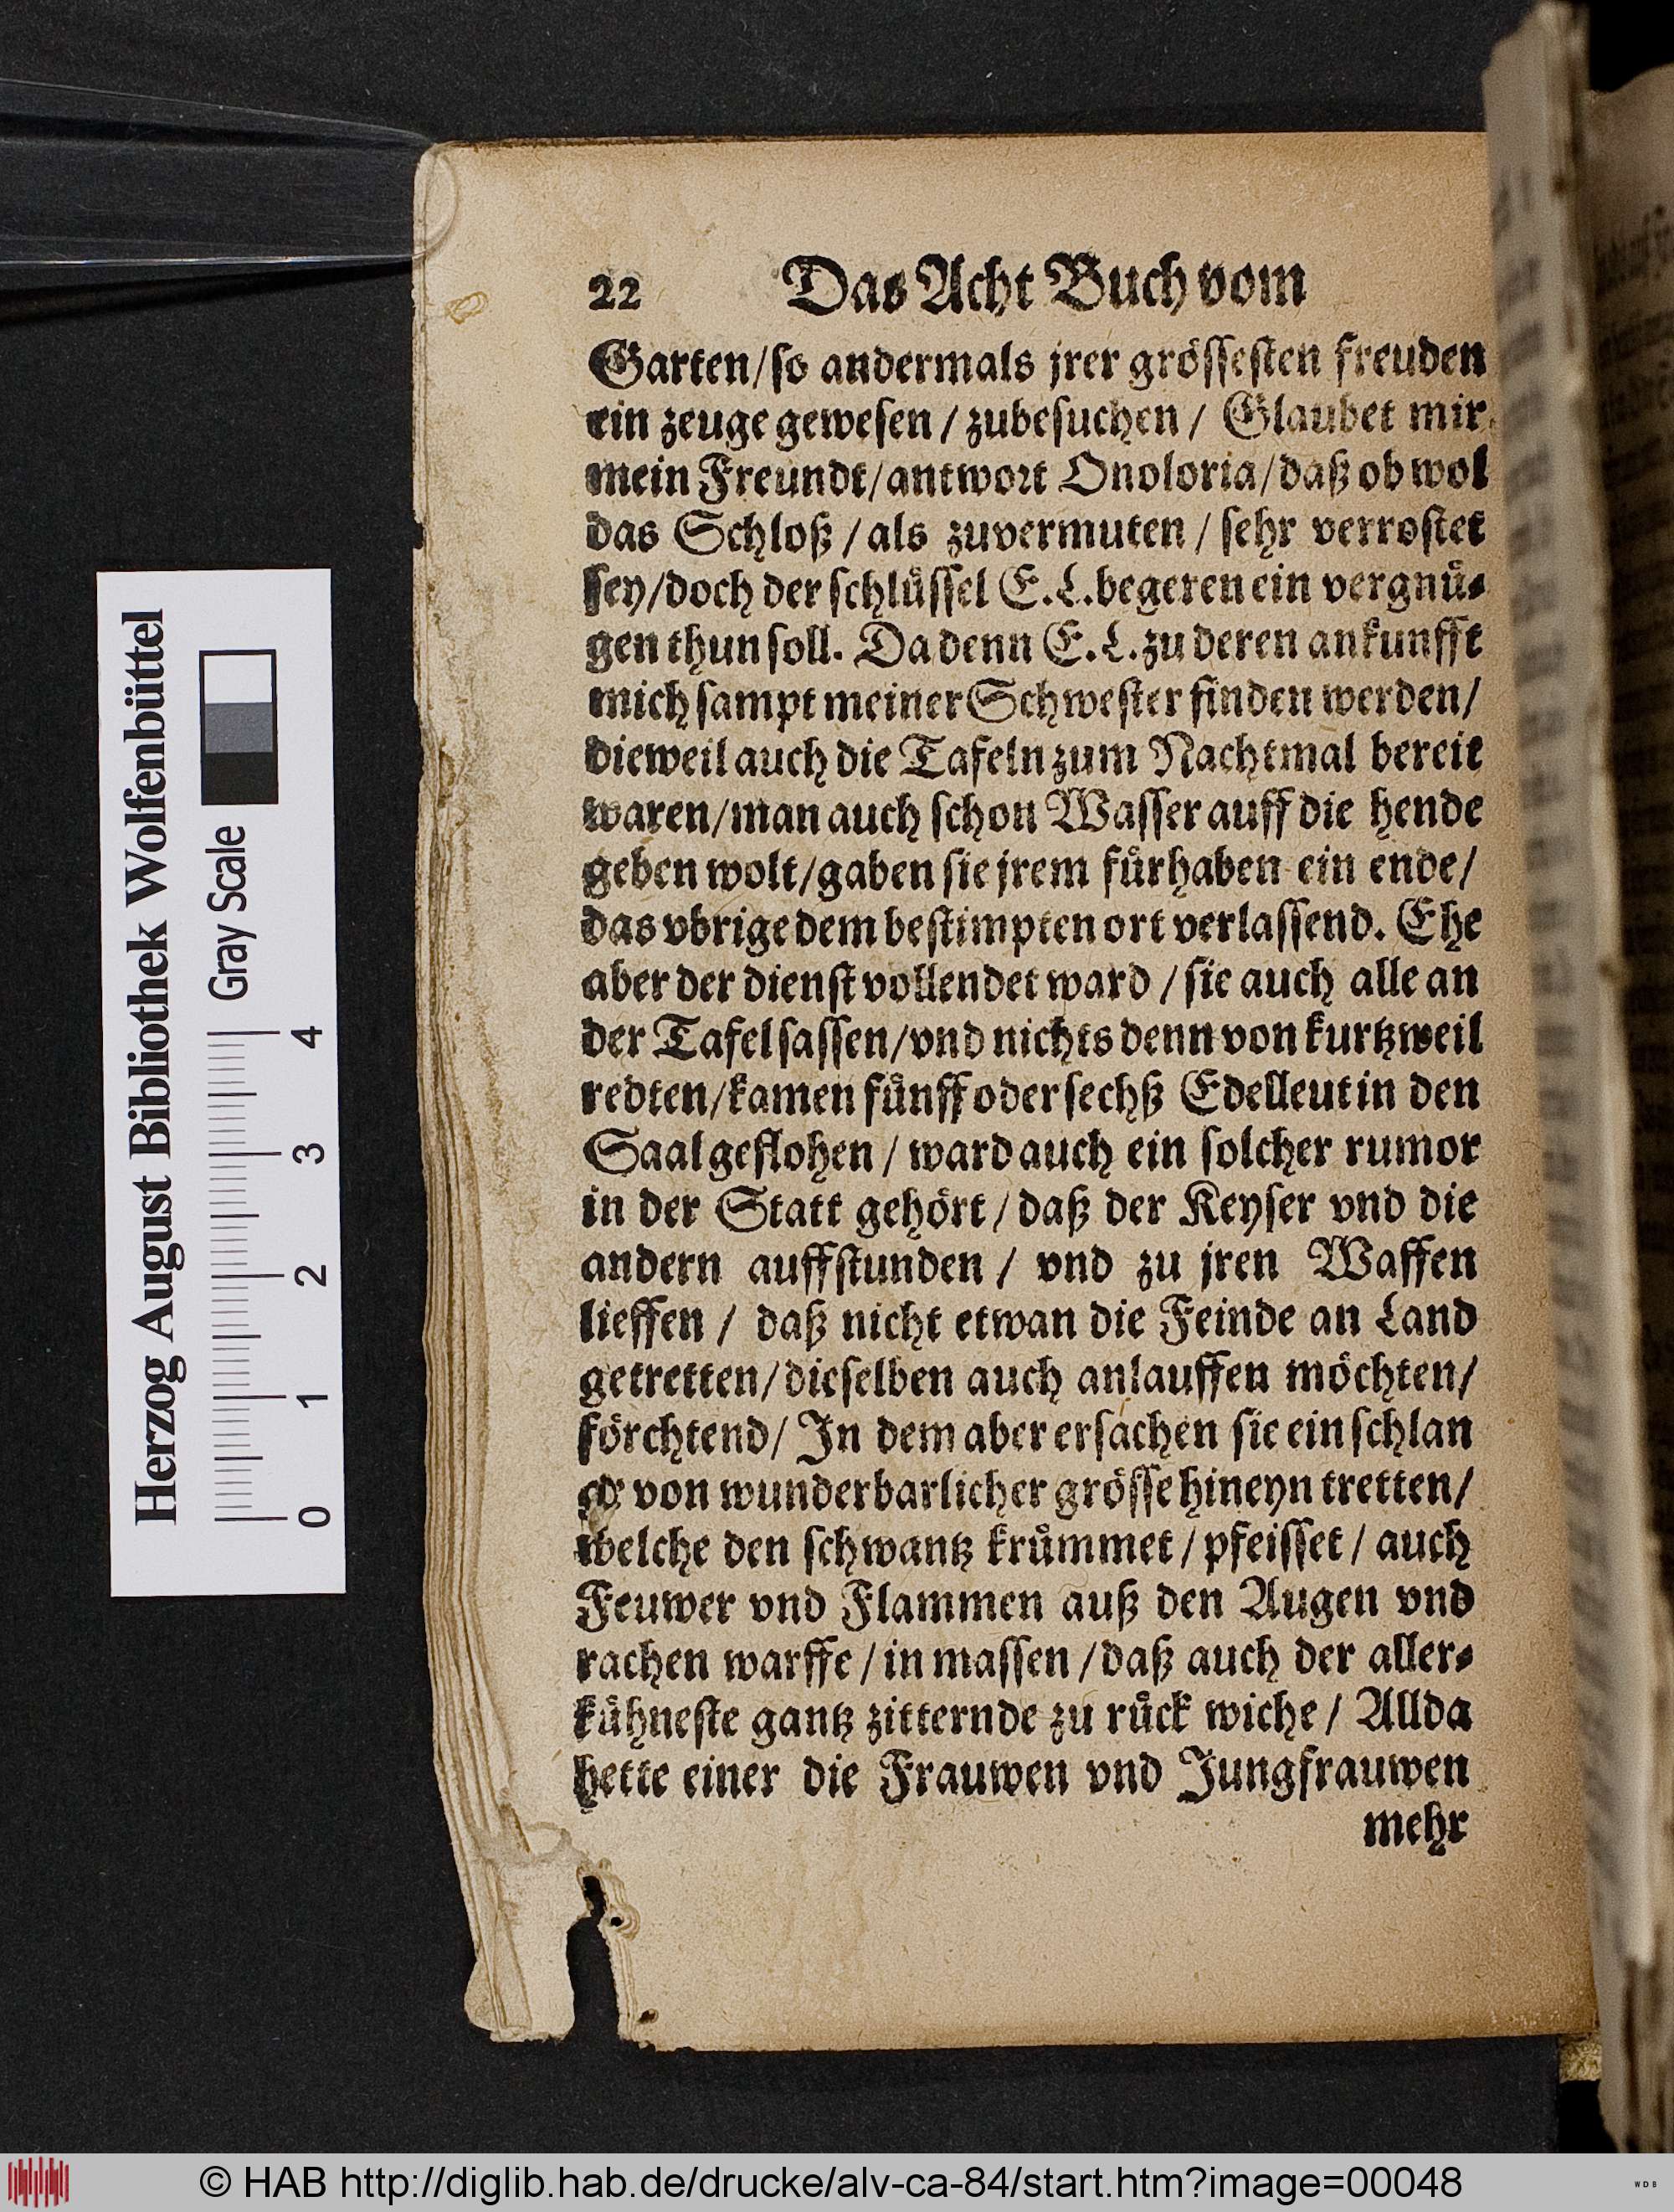 22 Das Acht Buch vom
Garten/so andermals jrer grössesten freuden
ein zeuge gewesen / zubesuchen / Glaubet mir
mein Freundt/antwort Onoloria/daß ob wol
das Schloß / als zuvermuten / sehr verrostet
sey/doch der schlüssel E. L. begeren ein vergnü-
gen thun soll. Da denn E. L. zu deren ankunfft
mich sampt meiner Schwester finden werden/
dieweil auch die Tafeln zum Nachtmal bereit
waren/man auch schon Wasser auff die hende
geben wolt/gaben sie jrem fürhaben ein ende/
das vbrige dem bestimpten ort verlassend. Ehe
aber der dienst vollendet ward / sie auch alle an
der Tafel sassen/vnd nichts denn von kurtzweil
redten/kamen fünff oder sechß Edelleut in den
Saal geflohen / ward auch ein solcher rumor
in der Statt gehört / daß der Keyser vnd die
andern auffstunden / vnd zu jren Waffen
lieffen / daß nicht etwan die Feinde an Land
getretten/dieselben auch anlauffen möchten/
förchtend/ In dem aber ersachen sie ein schlan
ge von wunderbarlicher grösse hineyn tretten/
welche den schwantz krümmet / pfeisset / auch
Feuwer vnd Flammen auß den Augen vnd
rachen warffe / in massen / daß auch der aller-
kühneste gantz zitternde zu rück wiche / Allda
hette einer die Frauwen vnd Jungfrauwen
mehr
Herzog August Bibliothek Wolfenbüttel
0 1 2 3 4 Gray Scale
© HAB http://diglib.hab.de/drucke/alv-ca-84/start.htm?image=00048
WDB